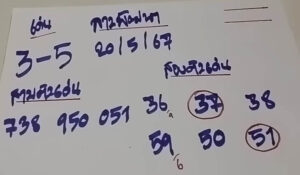 เด่น
3-5
20/5/67
สามตัวเด่น
738 950 051
สองตัวเด่น
36 37 38
59 50 51